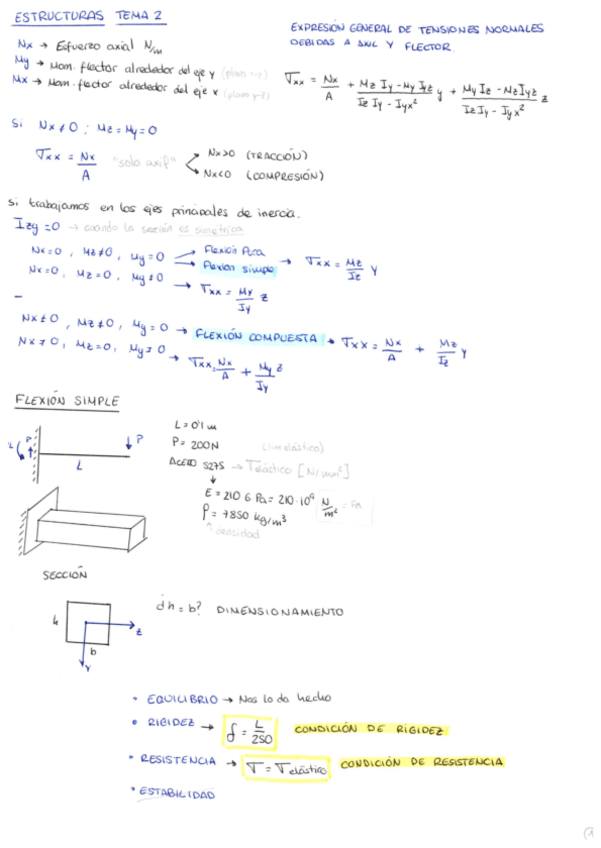 ESTRUCTURAS TEMA 2
EXPRESIÓN GENERAL DE TENSIONES NORMALES
DEBIDAS A AXIL Y FLECTOR.
Nx → Esfuerzo axial N/m
My → Mom. flector alrededor del eje y (plano x-y)
Mx → Mom. flector alrededor del eje x (plano y-z)
σxx = Nx/A + (Mz Iy - My Iyz)/(Iz Iy - Iyx²) y + (My Iz - Mz Iyz)/(Iz Iy - Iyx²) z
Si Nx ≠ 0 ; Mz = My = 0
σxx = Nx/A "solo axil"
Nx>0 (TRACCIÓN)
Nx<0 (COMPRESIÓN)
Si trabajamos en los ejes principales de inercia.
Izy = 0 → cuando la sección es simétrica
Nx=0 , Mz≠0 , My=0 → Flexión Pura
Flexión simple → σxx = Mz/Iz y
Nx=0 , Mz=0 , My≠0 → σxx = My/Iy z
Nx≠0 , Mz≠0 , My=0 → FLEXIÓN COMPUESTA → σxx = Nx/A + Mz/Iz y
Nx≠0 , Mz=0 , My≠0 → σxx = Nx/A + My/Iy z
FLEXIÓN SIMPLE
P
P
L
L = 0'1 m
P = 200N
(lim elástico)
ACERO S275 → σelástico [N/mm²]
E = 210 G Pa = 210·10⁹ N/m² = Pa
ρ = 7850 kg/m³
densidad
SECCIÓN
h
b
z
y
¿h = b? DIMENSIONAMIENTO
• EQUILIBRIO → Nos lo da hecho
• RIGIDEZ → δ = L/250 CONDICIÓN DE RIGIDEZ
• RESISTENCIA → σ = σelástico CONDICIÓN DE RESISTENCIA
• ESTABILIDAD